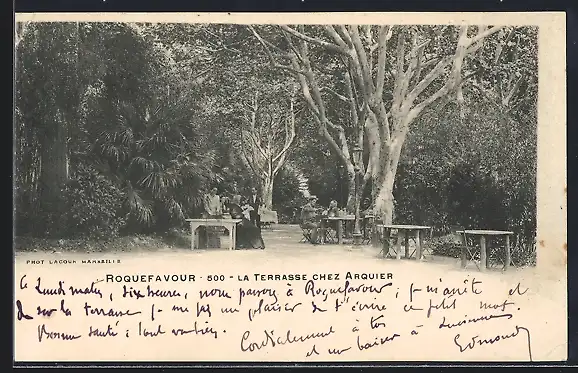 PHOT LACOUR MARSEILLE
ROQUEFAVOUR - 500 - LA TERRASSE CHEZ ARQUIER
Lundi matin, dix heures, nous passons à Roquefavour, je m'arrête et
sur la terrasse je me fais un plaisir de t'écrire ce petit mot.
Bonne santé; tout va bien,
Cordialement à toi
et un baiser à Lucienne
Edmond